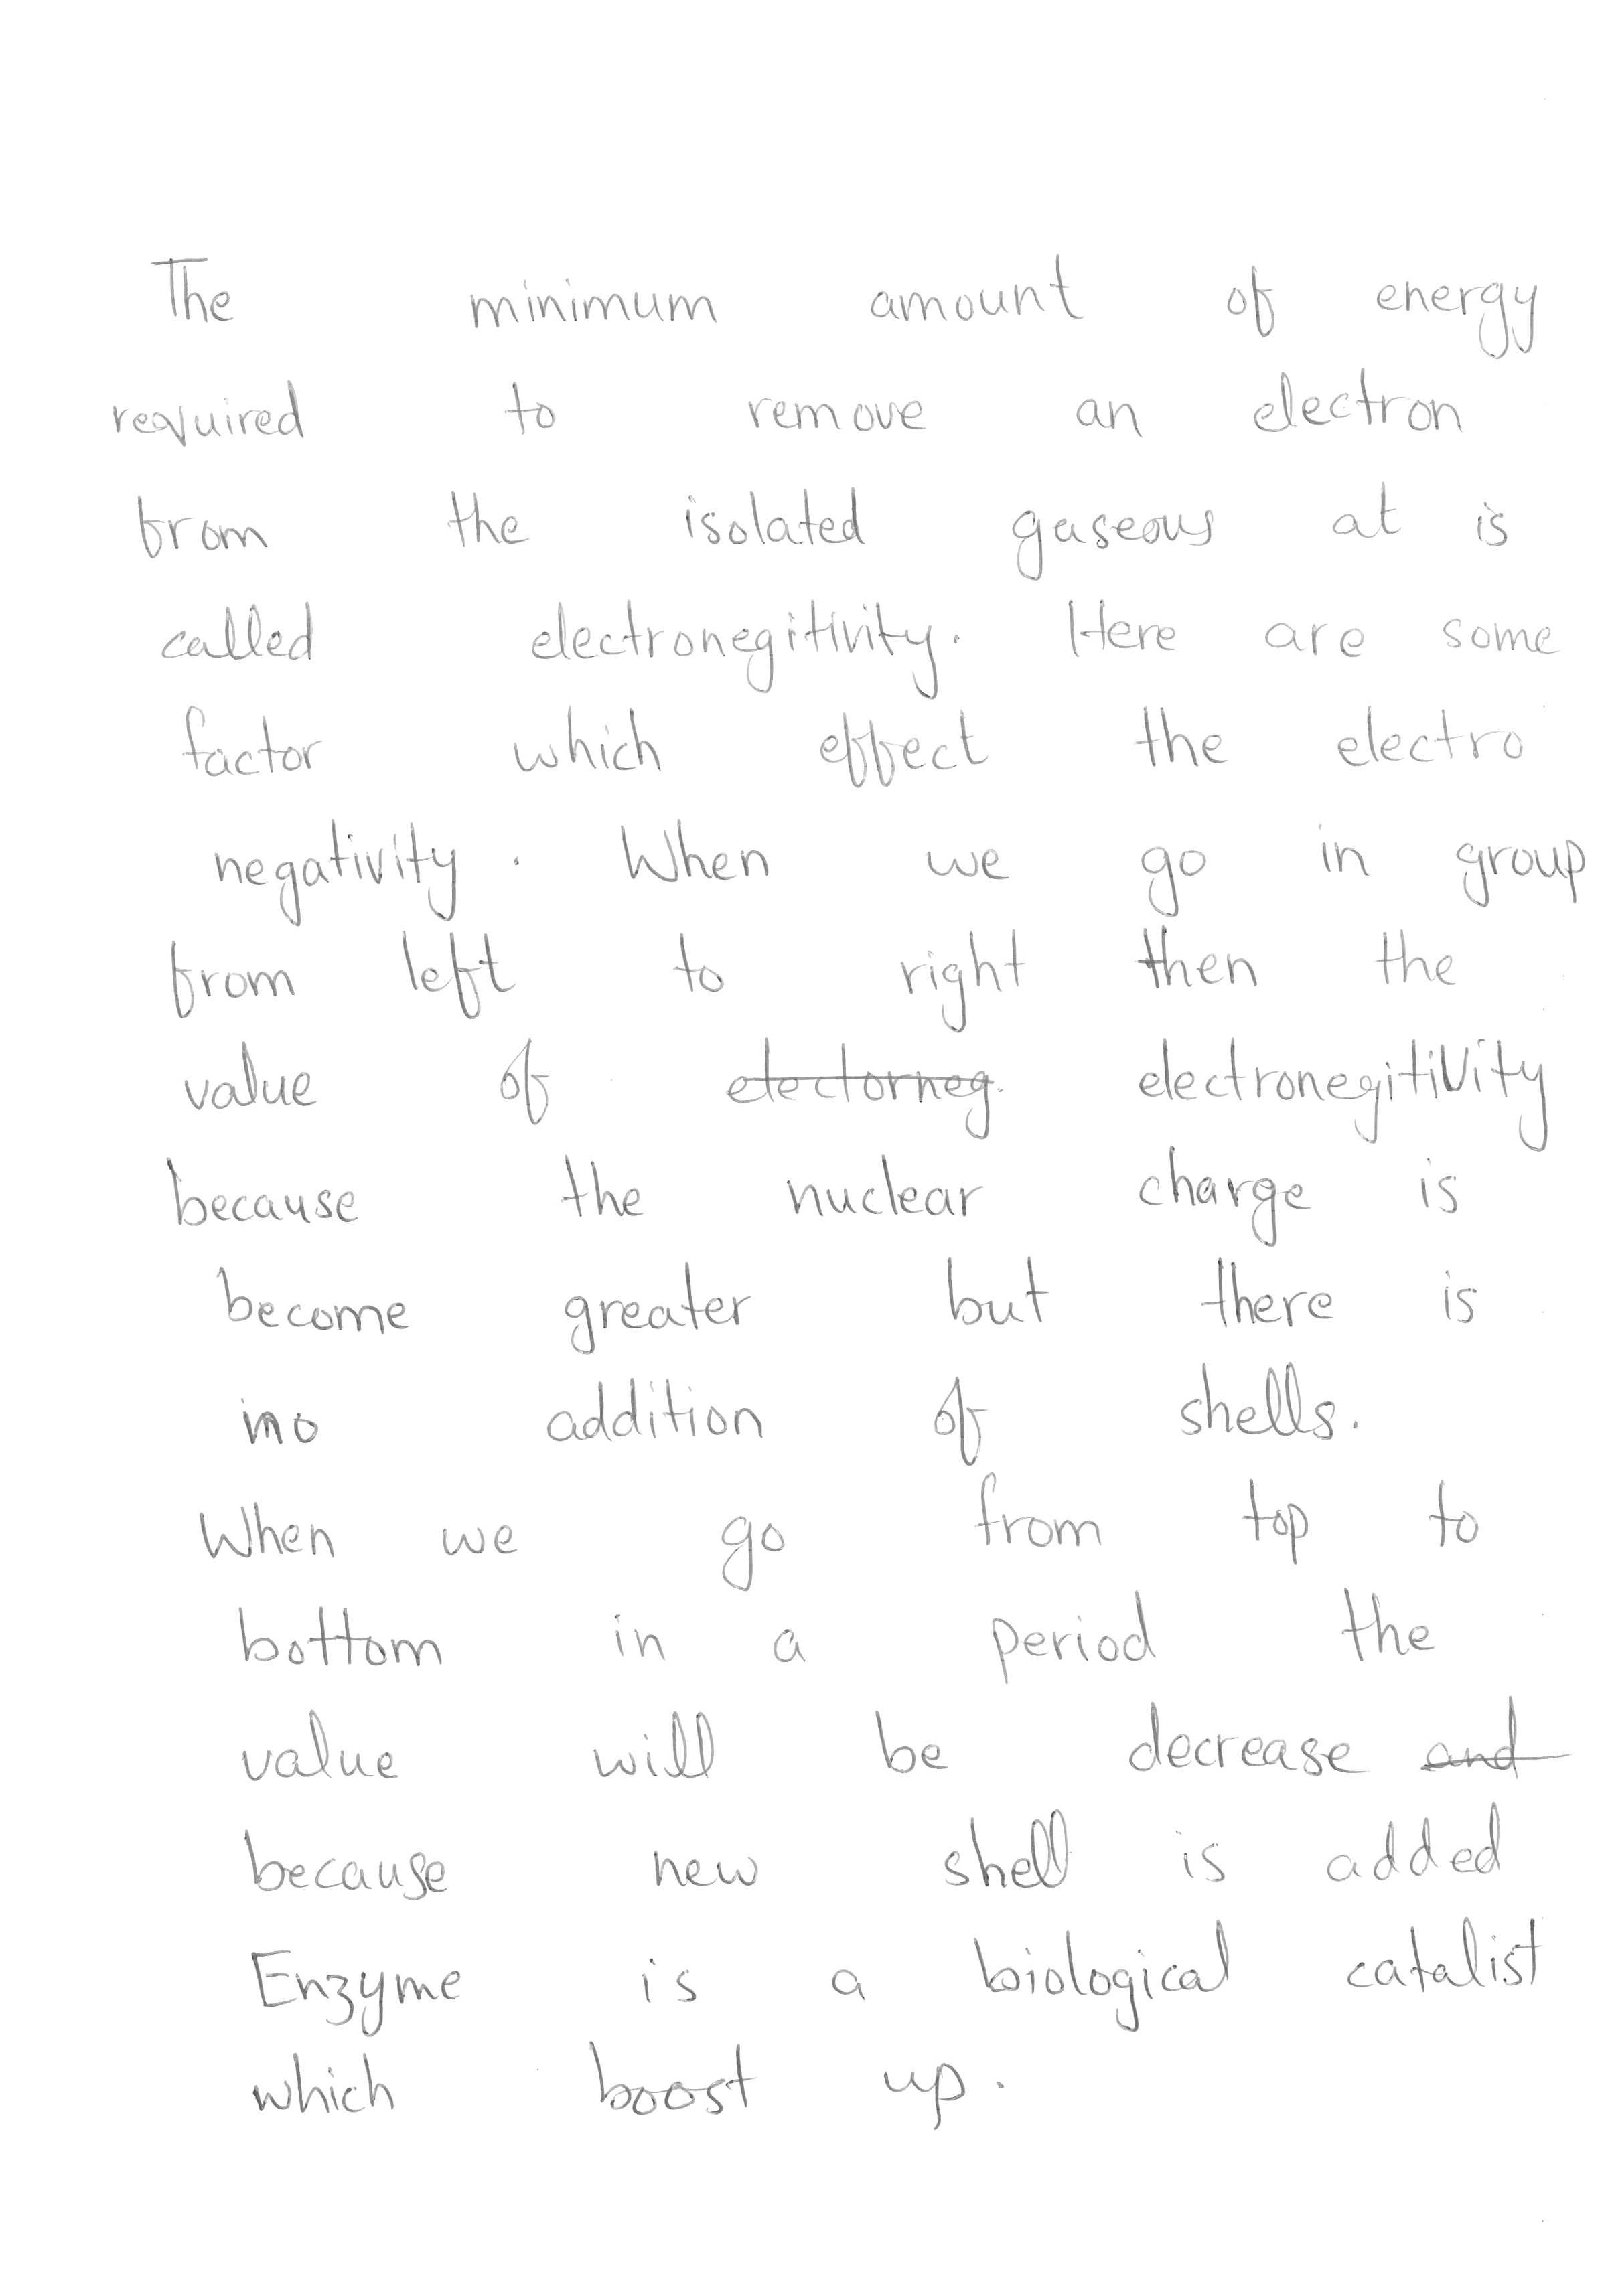 The minimum amount of energy
required to remove an electron
from the isolated gaseous at is
called electronegitivity. Here are some
factor which effect the electro
negativity. When we go in group
from left to right then the
value of electorneg. electronegitivity
because the nuclear charge is
become greater but there is
no addition of shells.
When we go from top to
bottom in a period the
value will be decrease and
because new shell is added
Enzyme is a biological catalist
which boost up.